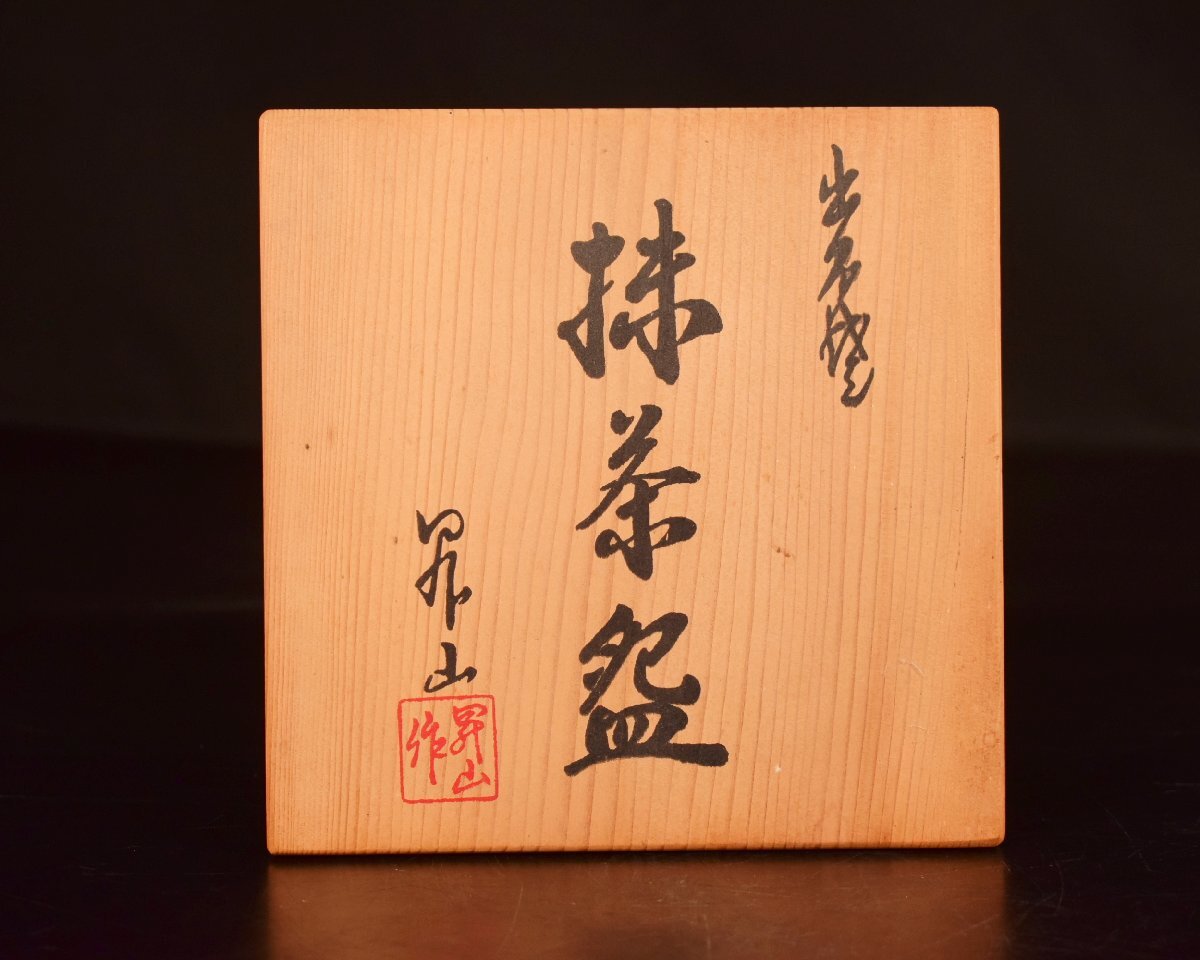 出石焼
抹茶盌
昇山
昇山
作